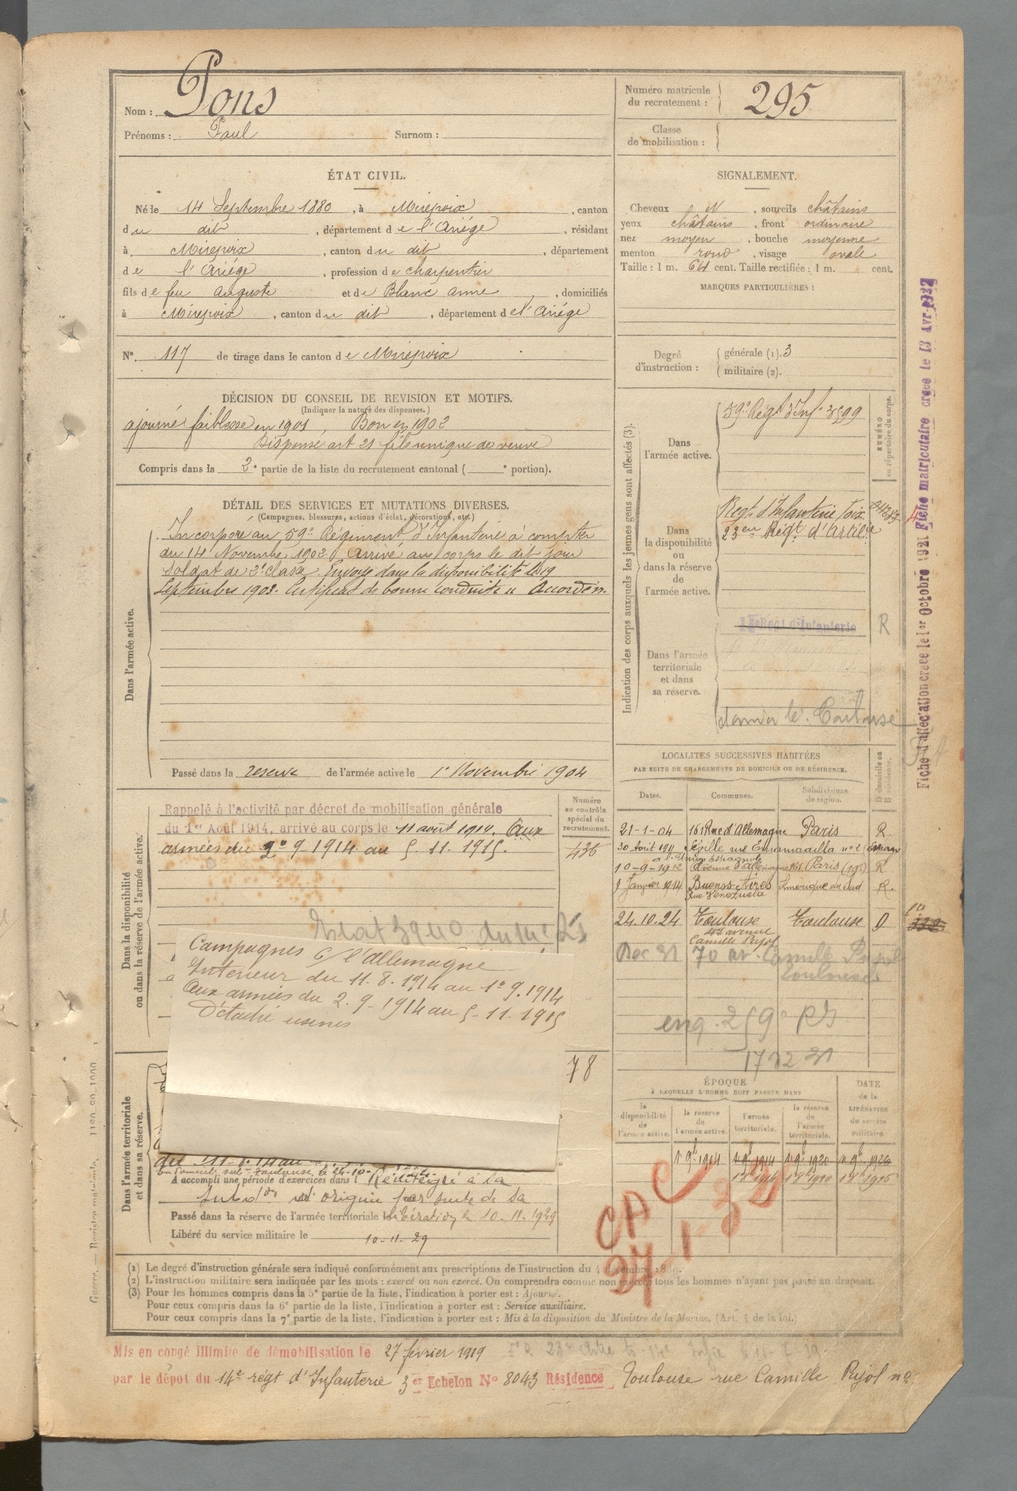 Nom : Pons
Prénoms : Paul Surnom :
Numéro matricule
du recrutement : 295
Classe
de mobilisation :
ÉTAT CIVIL.
Né le 14 Septembre 1880, à Mirepoix, canton
du dit, département de l'Ariége, résidant
à Mirepoix, canton du dit, département
de l'Ariége, profession de charpentier
fils de feu Auguste et de Blanc Anne, domiciliés
à Mirepoix, canton du dit, département de l'Ariége
N° 117 de tirage dans le canton de Mirepoix
SIGNALEMENT.
Cheveux N, sourcils châtains
yeux châtains, front ordinaire
nez moyen, bouche moyenne
menton rond, visage ovale
Taille : 1 m. 64 cent. Taille rectifiée : 1 m. cent.
MARQUES PARTICULIÈRES :
Degré
d'instruction :
générale (1). 3
militaire (2).
DÉCISION DU CONSEIL DE REVISION ET MOTIFS.
(Indiquer la nature des dispenses.)
ajourné faiblesse en 1901, Bon en 1902
Dispensé art 21 fils unique de veuve
Compris dans la 2e partie de la liste du recrutement cantonal ( e portion).
DÉTAIL DES SERVICES ET MUTATIONS DIVERSES.
(Campagnes, blessures, actions d'éclat, décorations, etc.)
Dans l'armée active.
Incorporé au 59e Régiment d'Infanterie à compter
du 14 Novembre 1902. Arrivé au corps le dit jour
soldat de 2e classe. Envoyé dans la disponibilité le 19
Septembre 1903. Certificat de bonne conduite " Accordé "
Passé dans la reserve de l'armée active le 1er Novembre 1904
Indication des corps auxquels les jeunes gens sont affectés (3).
NUMÉRO
au répertoire du corps.
Dans
l'armée active.
59e Régt d'Infie 3599
Dans
la disponibilité
ou
dans la réserve
de
l'armée active.
Régt d'Infanterie Foix
23eme Régt d'Artilie
Dans l'armée
territoriale
et dans
sa réserve.
Régt d'Infanterie R
Toulouse
Fiche d'affectation créée le 1er Octobre 1921 Fiche matriculaire créée le 13 Avr. 1927
Dans la disponibilité
ou dans la réserve de l'armée active.
Rappelé à l'activité par décret de mobilisation générale
du 1er Août 1914, arrivé au corps le 11 août 1914. Aux
armées du 2.9.1914 au 5.11.1915.
Numéro
au contrôle
spécial du
recrutement.
436
Campagnes c/ l'Allemagne
Intérieur du 11.8.1914 au 1er 9.1914
Aux armées du 2.9.1914 au 5-11-1915
Détaché usines
78
LOCALITÉS SUCCESSIVES HABITÉES
PAR SUITE DE CHANGEMENTS DE DOMICILE OU DE RÉSIDENCE.
Dates. Communes. Subdivisions
de région. D domicile ou
R résidence.
21-1-04 161 Rue d'Allemagne Paris R.
30 Août 1911 Séville rue
10-9-1912 Paris R
1 Janvier 1914 Buenos-Aires Amérique du sud R.
24.10.24 Toulouse Toulouse D
avenue
Camille Pujol
Dec 31 70 av. Camille Pujol
Toulouse
17 12 31
ÉPOQUE
À LAQUELLE L'HOMME DOIT PASSER DANS
la
disponibilité
de
l'armée active.
la réserve
de
l'armée active.
l'armée
territoriale.
la réserve
de
l'armée
territoriale.
DATE
de la
LIBÉRATION
du service
militaire.
CAC
Dans l'armée territoriale
et dans sa réserve.
A accompli une période d'exercices dans l Réintégré à sa
subdon d'origine par suite de sa
Passé dans la réserve de l'armée territoriale le libération le 10.11.1929
Libéré du service militaire le 10-11-29
(1) Le degré d'instruction générale sera indiqué conformément aux prescriptions de l'Instruction du 4
(2) L'instruction militaire sera indiquée par les mots : exercé ou non exercé. On comprendra comme non exercés tous les hommes n'ayant pas passé au drapeau.
(3) Pour les hommes compris dans la 5e partie de la liste, l'indication à porter est : Ajourné.
Pour ceux compris dans la 6e partie de la liste, l'indication à porter est : Service auxiliaire.
Pour ceux compris dans la 7e partie de la liste, l'indication à porter est : Mis à la disposition du Ministre de la Marine. (Art. 4 de la loi.)
Mis en congé illimité de démobilisation le 27 février 1919
par le dépôt du 14e régt d'Infanterie 3e Echelon N° 8043 Résidence Toulouse rue Camille Pujol